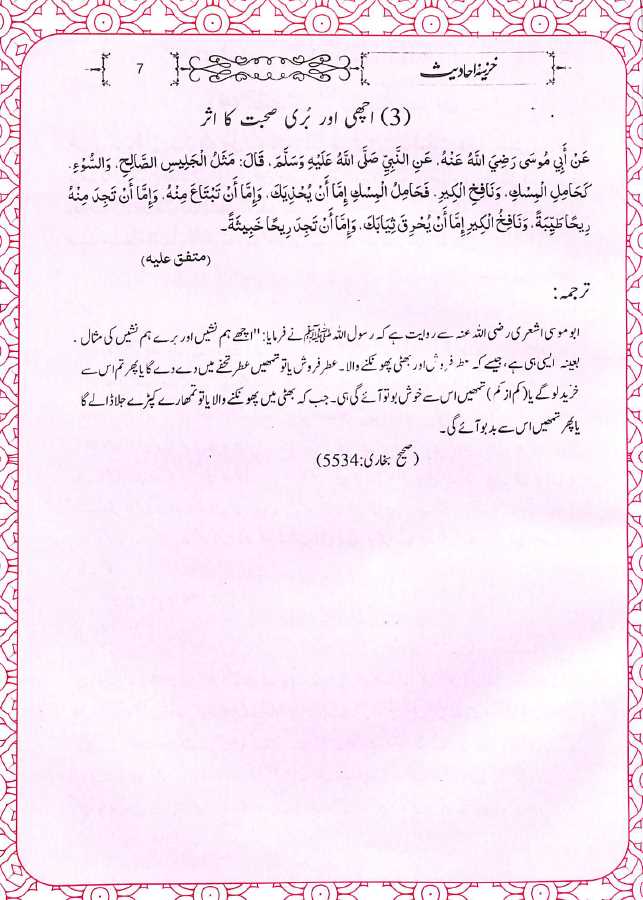 خزینۂ احادیث
7
(3) اچھی اور بُری صحبت کا اثر
عَنْ أَبِي مُوسَى رَضِيَ اللَّهُ عَنْهُ، عَنِ النَّبِيِّ صَلَّى اللَّهُ عَلَيْهِ وَسَلَّمَ، قَالَ: مَثَلُ الْجَلِيسِ الصَّالِحِ، وَالسَّوْءِ،
كَحَامِلِ الْمِسْكِ، وَنَافِخِ الْكِيرِ، فَحَامِلُ الْمِسْكِ إِمَّا أَنْ يُحْذِيَكَ، وَإِمَّا أَنْ تَبْتَاعَ مِنْهُ، وَإِمَّا أَنْ تَجِدَ مِنْهُ
رِيحًا طَيِّبَةً، وَنَافِخُ الْكِيرِ إِمَّا أَنْ يُحْرِقَ ثِيَابَكَ، وَإِمَّا أَنْ تَجِدَ رِيحًا خَبِيثَةً۔
(متفق علیه)
ترجمہ:
ابو موسی اشعری رضی اللہ عنہ سے روایت ہے کہ رسول اللہ ﷺ نے فرمایا: "اچھے ہم نشیں اور برے ہم نشیں کی مثال
بعینہ ایسی ہی ہے، جیسے کہ عطر فروش اور بھٹی پھونکنے والا۔ عطر فروش یا تو تمھیں عطر تحفے میں دے دے گا یا پھر تم اس سے
خرید لو گے یا (کم از کم) تمھیں اس سے خوش بو تو آئے گی ہی۔ جب کہ بھٹی میں پھونکنے والا یا تو تمھارے کپڑے جلا ڈالے گا
یا پھر تمھیں اس سے بدبو آئے گی۔
(صحیح بخاری:5534)